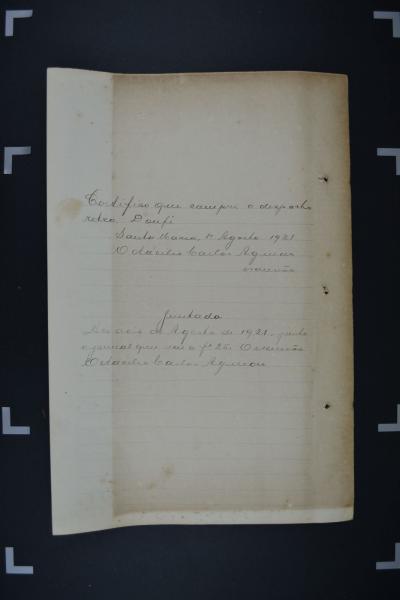 Certifico que cumpri o despacho
retro. Doufé
Santa Maria, 1º Agosto 1921
O Octacilio Carlos Aguiar
escrivão
Juntada
de Agosto de 1921, junto
o jornal que se a fs 25. O escrivão
Octacilio Carlos Aguiar